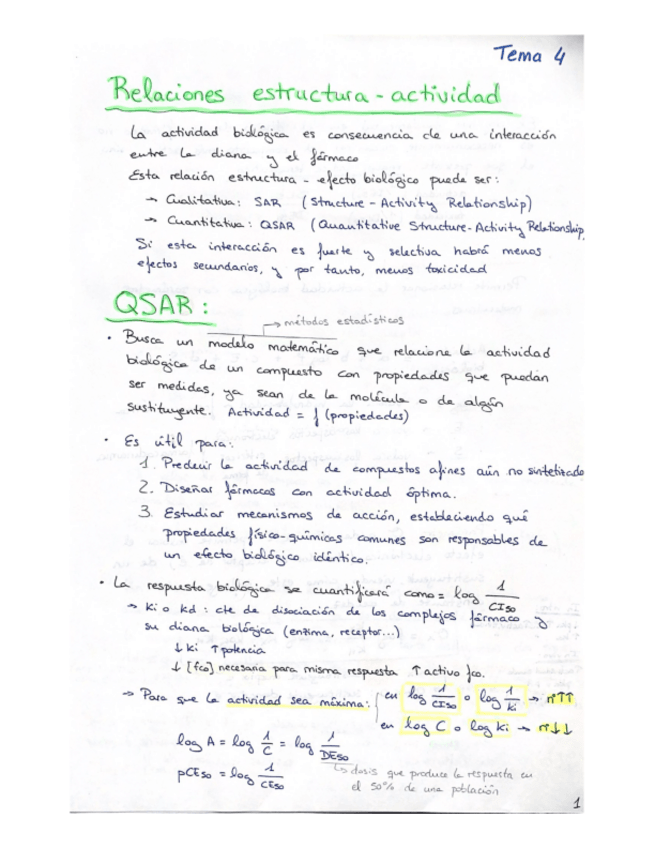 Tema 4
Relaciones estructura - actividad
La actividad biológica es consecuencia de una interacción
entre la diana y el fármaco
Esta relación estructura - efecto biológico puede ser:
→ Cualitativa: SAR (Structure - Activity Relationship)
→ Cuantitativa: QSAR (Quantitative Structure - Activity Relationship
Si esta interacción es fuerte y selectiva habrá menos
efectos secundarios, y por tanto, menos toxicidad
QSAR:
→ métodos estadísticos
• Busca un modelo matemático que relacione la actividad
biológica de un compuesto con propiedades que puedan
ser medidas, ya sean de la molécula o de algún
sustituyente. Actividad = f (propiedades)
• Es útil para:
1. Predecir la actividad de compuestos afines aún no sintetizado
2. Diseñar fármacos con actividad óptima.
3. Estudiar mecanismos de acción, estableciendo qué
propiedades físico-químicas comunes son responsables de
un efecto biológico idéntico.
• La respuesta biológica se cuantificará como = log 1/CI50
→ Ki o kd : cte de disociación de los complejos fármaco y
su diana biológica (enzima, receptor...)
↓ Ki ↑ potencia
↓ [fco] necesaria para misma respuesta ↑ activo fco.
→ Para que la actividad sea máxima: en log 1/CI50 o log 1/Ki → nº↑↑
en log C o log Ki → nº↓↓
log A = log 1/C = log 1/DE50
↳ dosis que produce la respuesta en
el 50% de una población
pCE50 = log 1/CE50
1